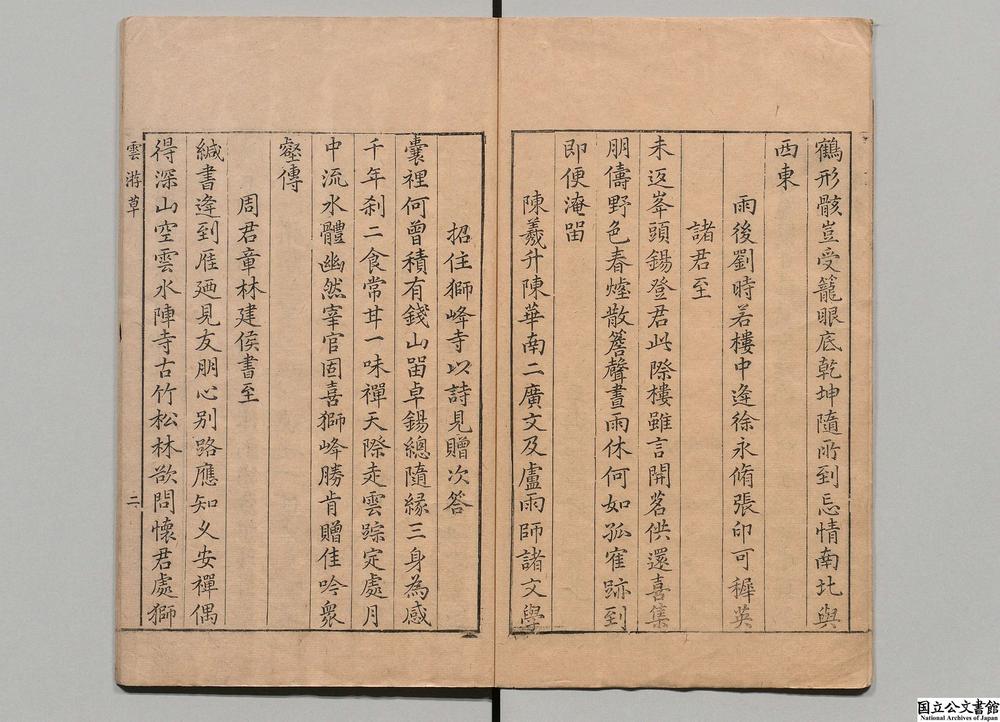 鶴形骸豈受籠眼底乾坤隨所到忘情南北與
西東
雨後劉時若樓中逢徐永脩張印可穉英
諸君至
未返峯頭錫登君此際樓雖言開茗供還喜集
朋儔野色春煙散簷聲晝雨休何如孤隺跡到
即便淹畱
陳羲升陳華南二廣文及盧雨師諸文學
招住獅峰寺以詩見贈次答
囊裡何曾積有錢山畱卓錫總隨緣三身為感
千年剎二食常甘一味禪天際走雲踪定處月
中流水體幽然宰官固喜獅峰勝肯贈佳吟衆
壑傳
周君章林建侯書至
緘書逢到雁廼見友朋心别路應知乂安禪偶
得深山空雲水陣寺古竹松林欲問懷君處獅
雲游草
二
国立公文書館
National Archives of Japan